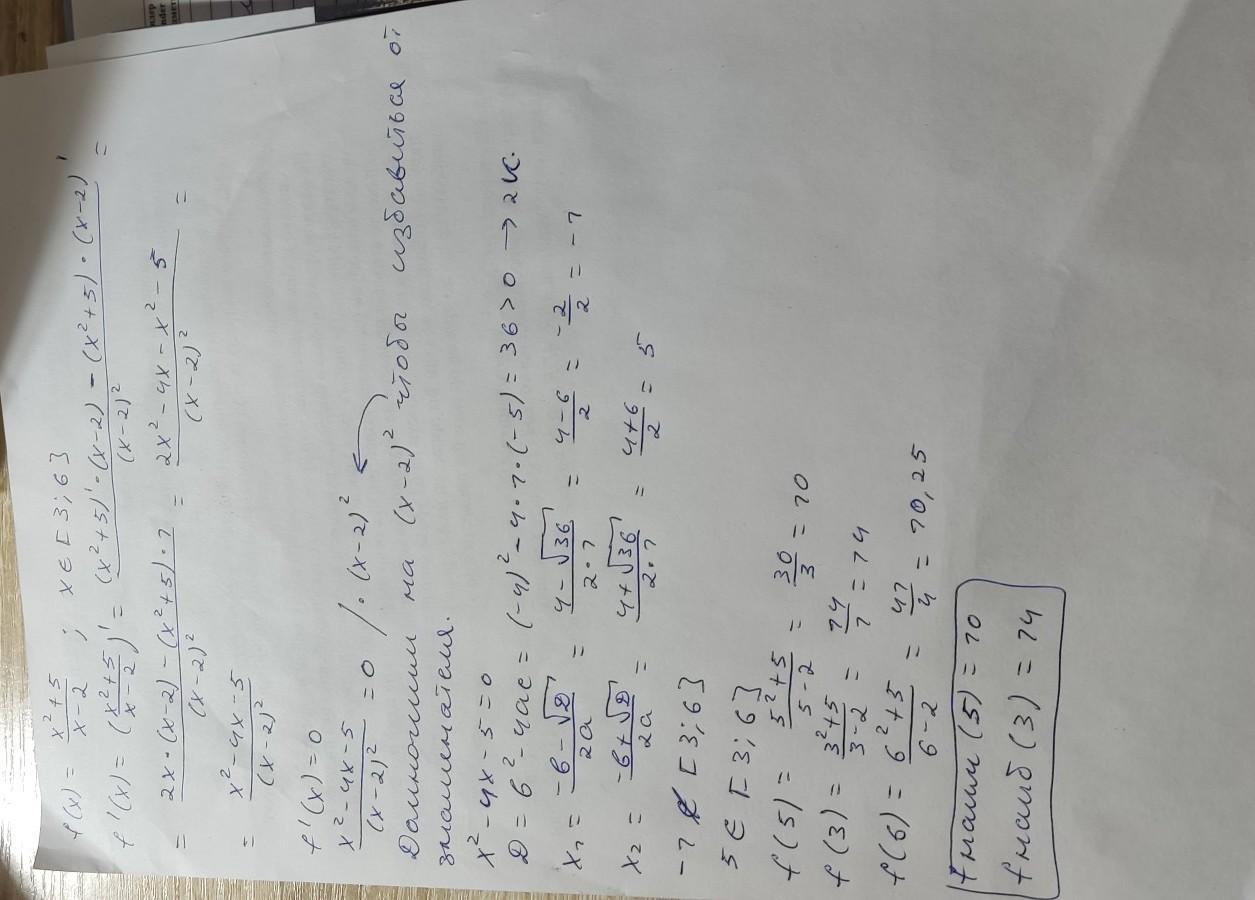 f(x) = x²+5 / x-2 ; x∈[3;6]
f'(x) = (x²+5 / x-2)' = (x²+5)'·(x-2) - (x²+5)·(x-2)' / (x-2)² =
= 2x·(x-2) - (x²+5)·1 / (x-2)² = 2x²-4x-x²-5 / (x-2)² =
= x²-4x-5 / (x-2)²
f'(x) = 0
x²-4x-5 / (x-2)² = 0 /·(x-2)²
Домножили на (x-2)² чтобы избавиться от
знаменателя.
x²-4x-5=0
D = b²-4ac = (-4)²-4·1·(-5) = 36 > 0 → 2 к.
x₁ = -b-√D / 2a = 4-√36 / 2·1 = 4-6 / 2 = -2/2 = -1
x₂ = -b+√D / 2a = 4+√36 / 2·1 = 4+6 / 2 = 5
-1 ∉ [3;6]
5 ∈ [3;6]
f(5) = 5²+5 / 5-2 = 30/3 = 10
f(3) = 3²+5 / 3-2 = 14/1 = 14
f(6) = 6²+5 / 6-2 = 41/4 = 10,25
fнаим (5) = 10
fнаиб (3) = 14